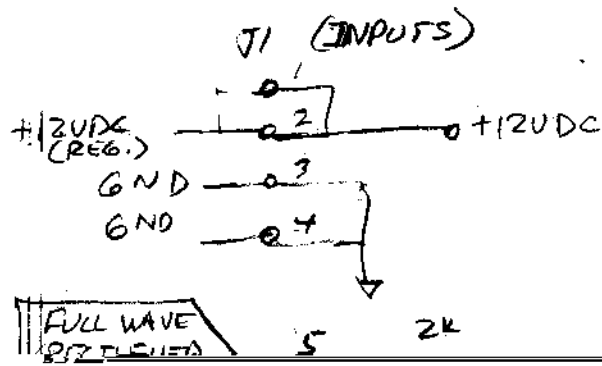 J1 (INPUTS)
1
+12VDC 2 +12VDC
(REG.)
GND 3
GND 4
FULL WAVE
5 2K